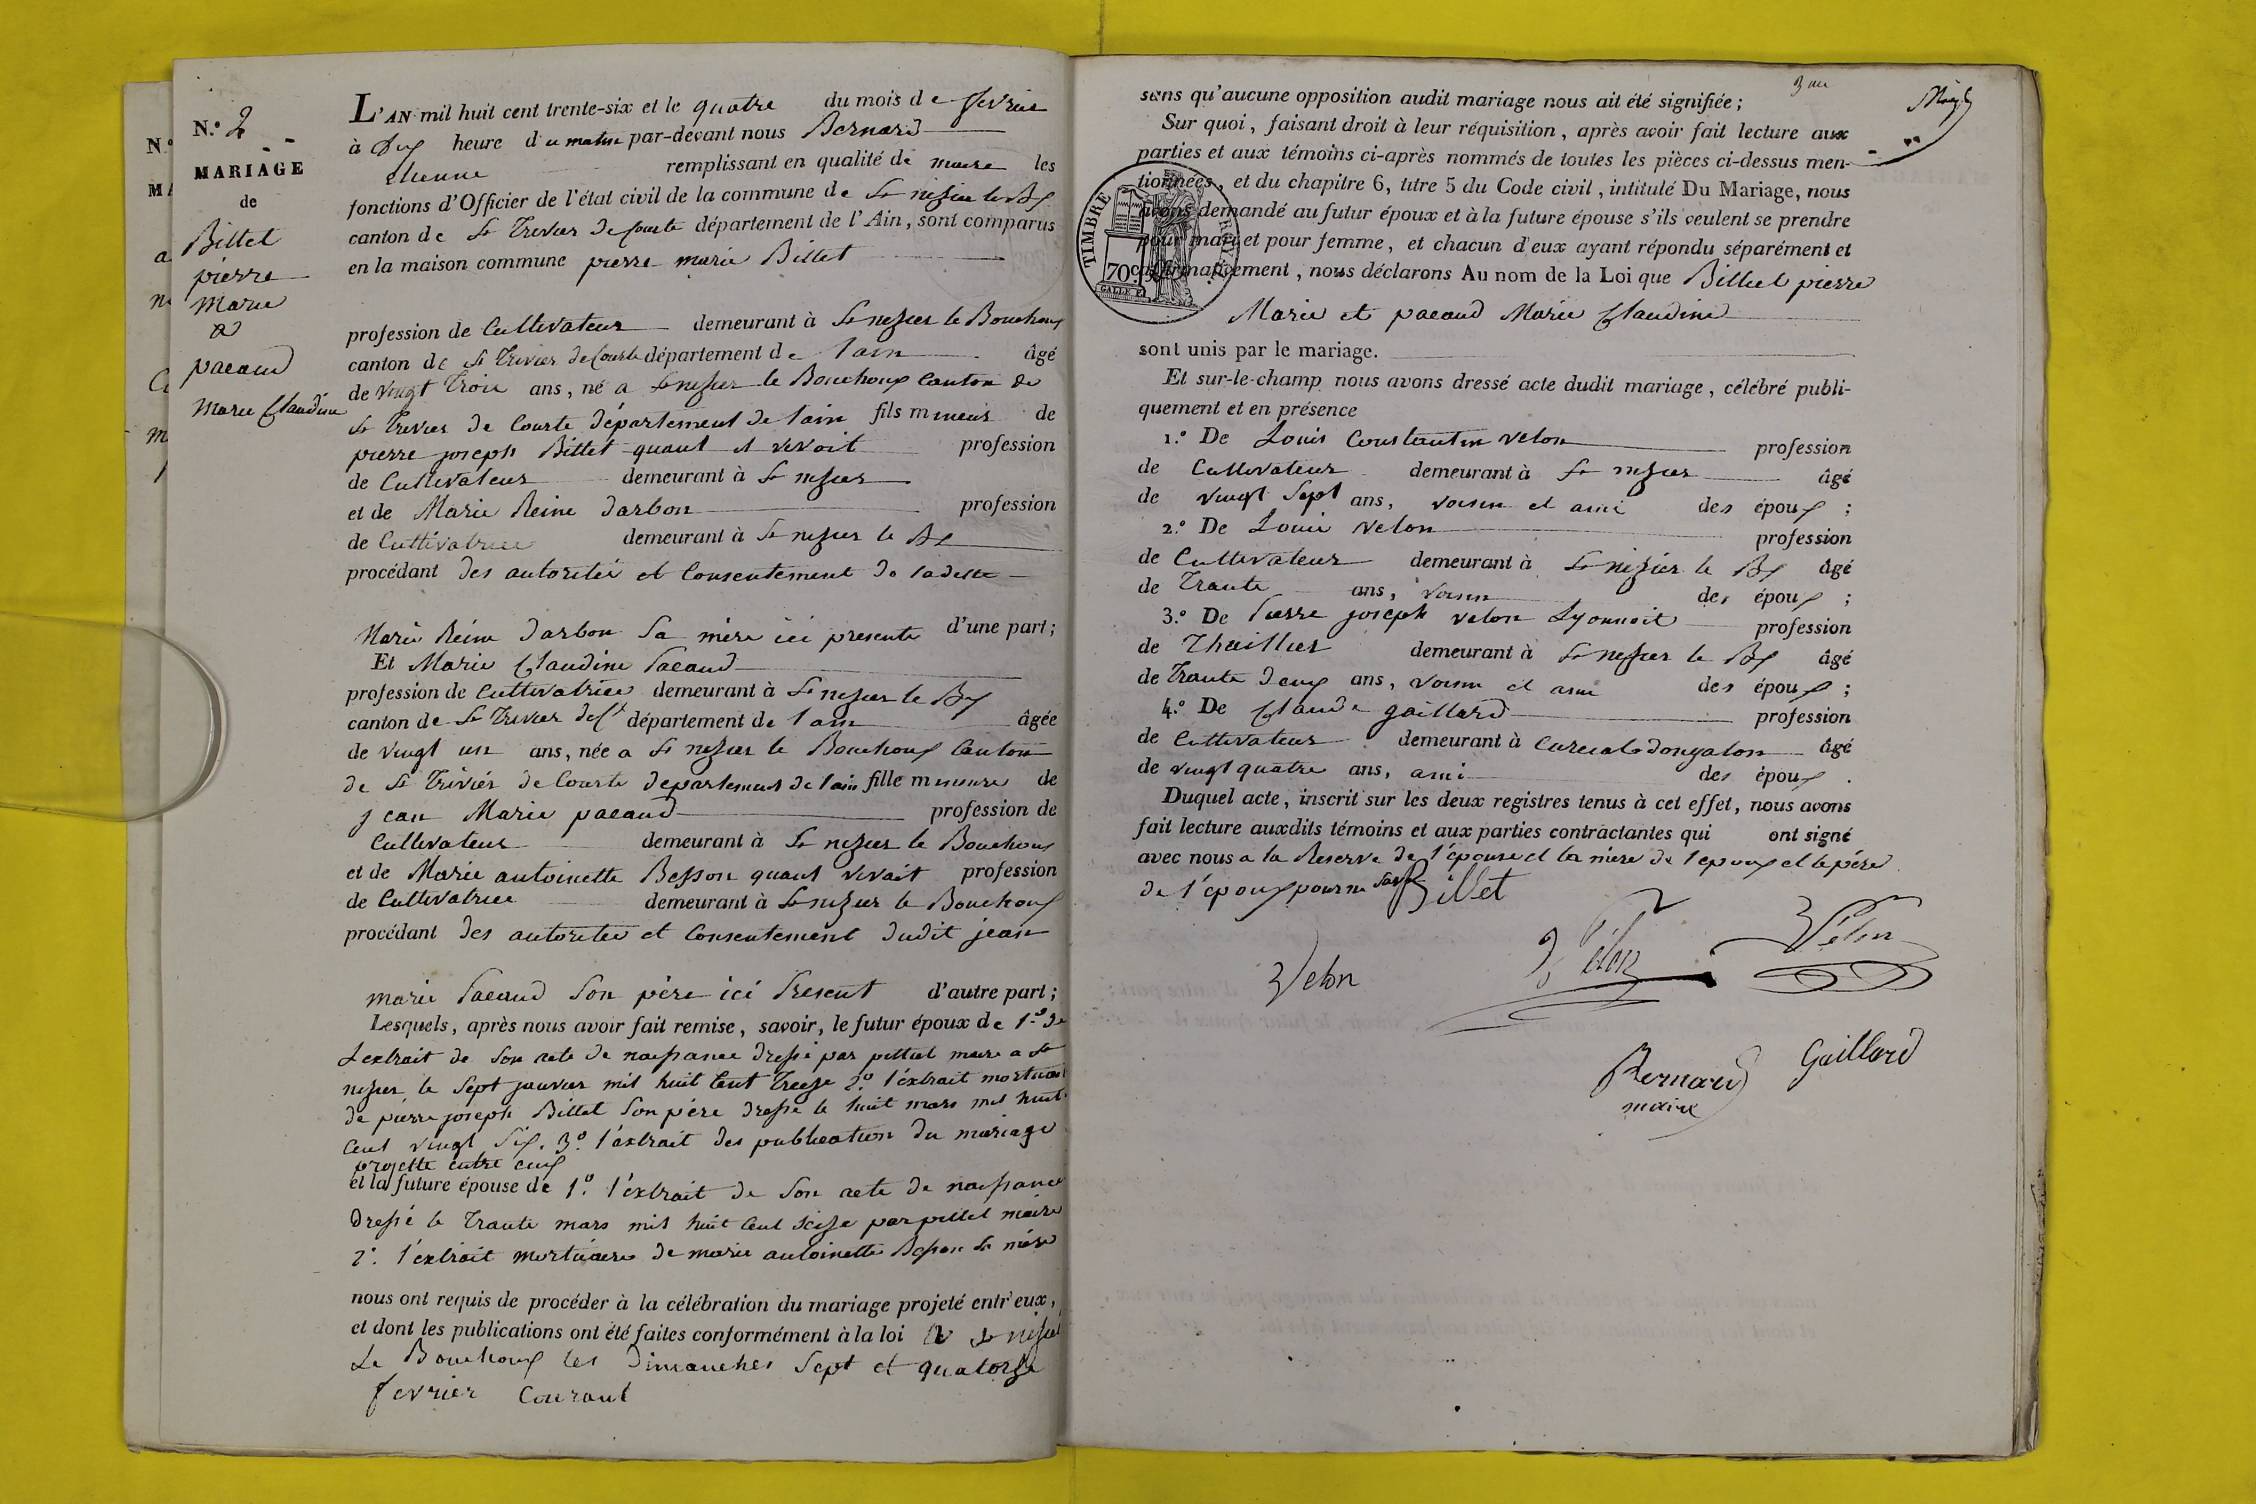 N.º 2
MARIAGE
de
Billet
pierre
Marie
&
pacaud
Marie Claudine
L'AN mil huit cent trente-six et le quatre du mois de fevrier
à dix heure du matin par-devant nous Bernard
Etienne remplissant en qualité de maire les
fonctions d'Officier de l'état civil de la commune de St nizier le Bx
canton de St Trivier de Courte département de l'Ain, sont comparus
en la maison commune pierre marie Billet
profession de Cultivateur demeurant à St nizier le Bouchoux
canton de St Trivier de Courte département de lain âgé
de vingt Trois ans, né a St nizier le Bouchoux Canton de
St Trivier de Courte département de lain fils mineur de
pierre joseph Billet quant il vivoit profession
de Cultivateur demeurant à St nizier
et de Marie Reine Darbon profession
de Cultivatrice demeurant à St nizier le Bx
procédant des autorités et Consentement de ladite
Marie Reine Darbon Sa mère ici presente d'une part;
Et Marie Claudine Pacaud
profession de Cultivatrice demeurant à St nizier le Bx
canton de St Trivier de Ct département de lain âgée
de vingt un ans, née a St nizier le Bouchoux Canton
de St Trivier de Courte departement de lain fille mineure de
jean Marie pacaud profession de
Cultivateur demeurant à St nizier le Bouchoux
et de Marie antoinette Besson quant vivait profession
de Cultivatrice demeurant à St nizier le Bouchoux
procédant des autorités et Consentement dudit jean
marie Pacaud Son père ici Present d'autre part;
Lesquels, après nous avoir fait remise, savoir, le futur époux de 1.º de
L'extrait de Son acte de naissance dressé par pittiet maire a St
nizier le Sept janvier mil huit Cent Treize 2.º l'éxtrait mortuair
de pierre joseph Billet Son père dressé le huit mars mil huit
Cent vingt Six. 3.º l'éxtrait des publication du mariage
projetté entre eux
et la future épouse de 1.º l'éxtrait de Son acte de naissance
Dressé le Trante mars mil huit Cent Seize par maire
2.º l'éxtrait mortuaire de marie antoinette Besson Sa mère
nous ont requis de procéder à la célébration du mariage projeté entr'eux,
et dont les publications ont été faites conformément à la loi a St nizier
Le Bouchoux les Dimanches Sept et quatorze
fevrier Courant
sans qu'aucune opposition audit mariage nous ait été signifiée;
Sur quoi, faisant droit à leur réquisition, après avoir fait lecture aux
parties et aux témoins ci-après nommés de toutes les pièces ci-dessus men-
tionnées, et du chapitre 6, titre 5 du Code civil, intitulé Du Mariage, nous
avons demandé au futur époux et à la future épouse s'ils veulent se prendre
pour mari et pour femme, et chacun d'eux ayant répondu séparément et
affirmativement, nous déclarons Au nom de la Loi que Billiet pierre
Marie et pacaud Marie Claudine
TIMBRE ROYAL
70 c.
GALLE F.
sont unis par le mariage.
Et sur-le-champ nous avons dressé acte dudit mariage, célébré publi-
quement et en présence
1.º De Louis Constantin velon profession
de Cultivateur demeurant à St nizier âgé
de vingt Sept ans, voisin et ami des époux;
2.º De Louis velon profession
de Cultivateur demeurant à St nizier le Bx âgé
de Trante ans, voisin des époux;
3.º De Pierre joseph velon Lyonnoit profession
de Thaillier demeurant à St nizier le Bx âgé
de Trante deux ans, voisin et ami des époux;
4.º De Claude gaillard profession
de Cultivateur demeurant à Curciat dongalon âgé
de vingt quatre ans, ami des époux.
Duquel acte, inscrit sur les deux registres tenus à cet effet, nous avons
fait lecture auxdits témoins et aux parties contractantes qui ont signé
avec nous a la Reserve de l'épouse et la mère de l'epoux et le père
de l'époux pour ne Savoir
Billet
Velon
Velon
Velon
Bernard
maire
Gaillard